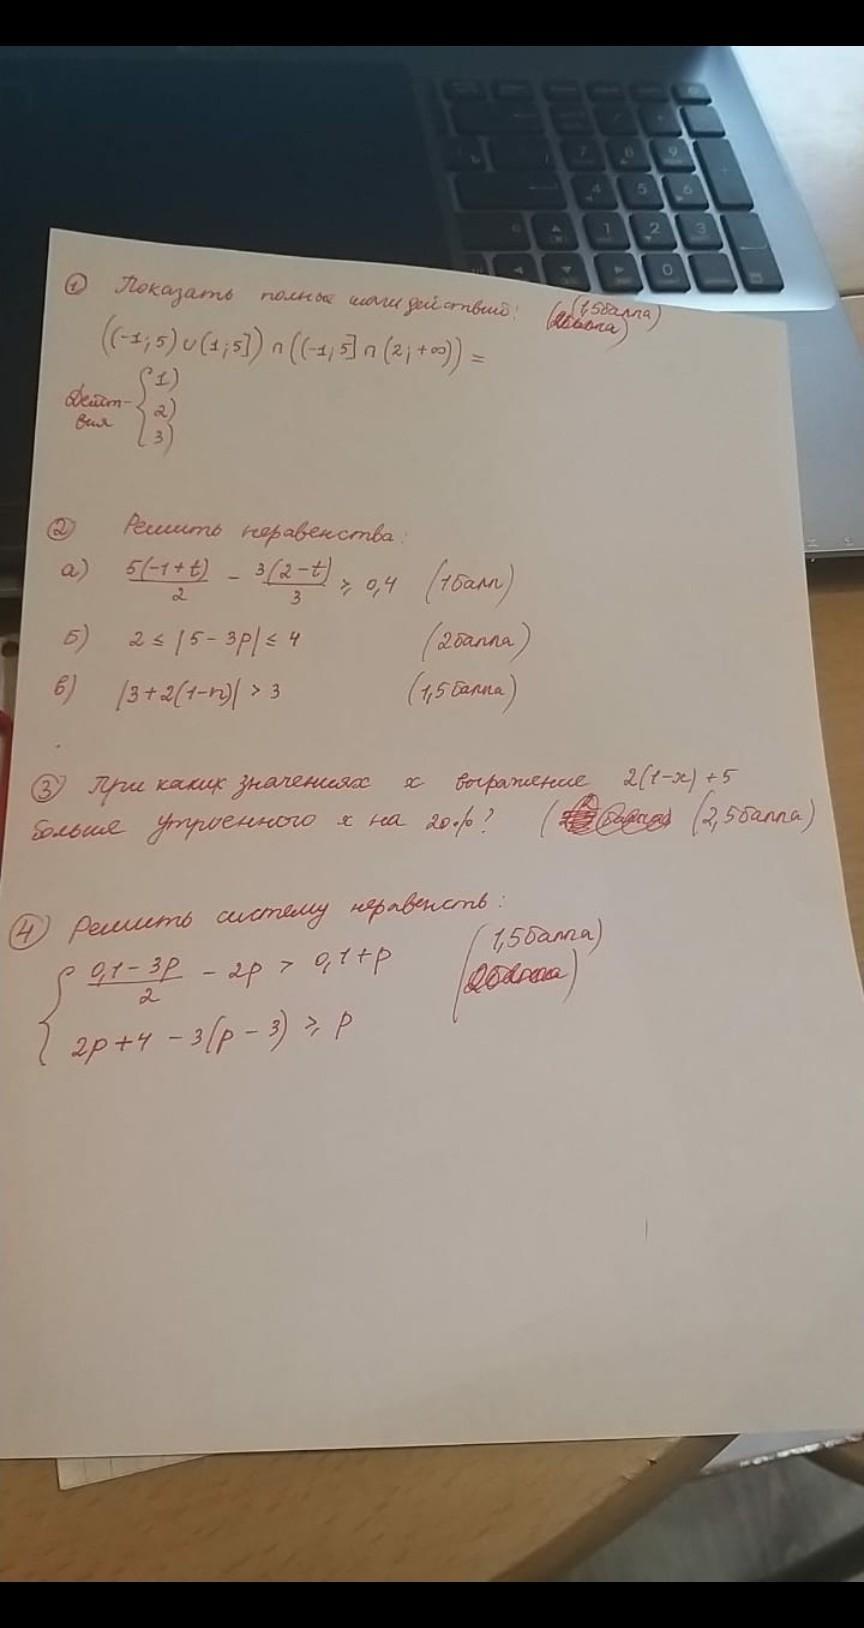 ① Показать полные шаги действий: (1,5 балла)
((-1; 5) ∪ (1; 5]) ∩ ((-1; 5] ∩ (2; +∞)) =
Дейст-
вия
1)
2)
3)
② Решить неравенства:
а) 5(-1+t)/2 - 3(2-t)/3 ⩾ 0,4 (1балл)
б) 2 ≤ |5 - 3p| ≤ 4 (2балла)
в) |3+2(1-n)| > 3 (1,5балла)
③ При каких значениях x выражение 2(1-x)+5
больше утроенного x на 20%? (2,5балла)
④ Решить систему неравенств:
{ (0,1-3p)/2 - 2p > 0,1+p (1,5балла)
2p+4 - 3(p-3) ⩾ p
7 8 9
4 5 6
1 2 3
0